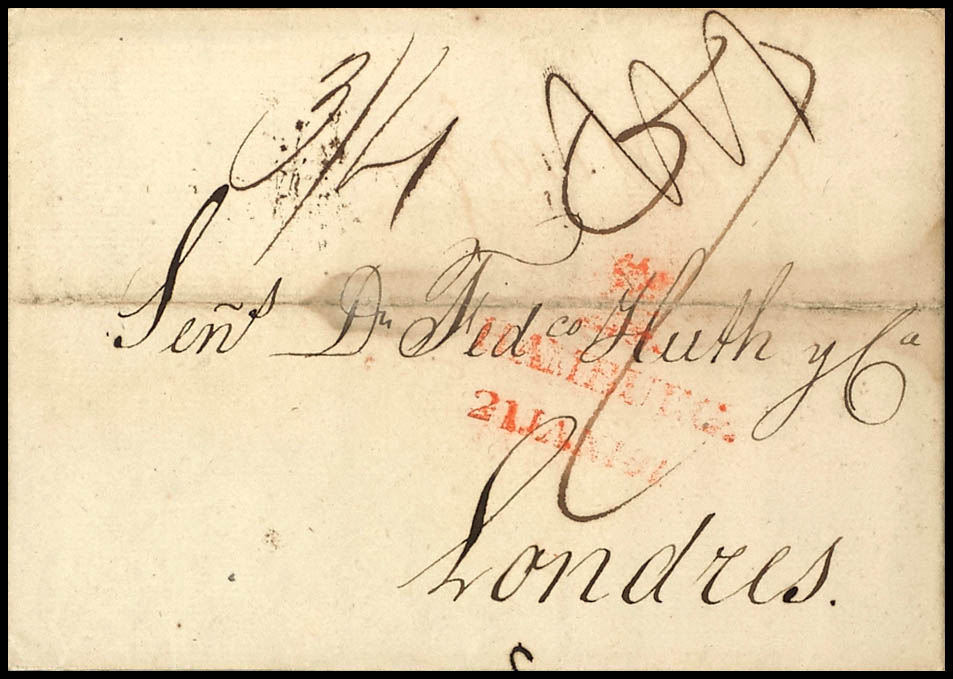 3/4
Señs Dn Fedco Huth y Ca
HAMBURG.
21 JAN
Londres.